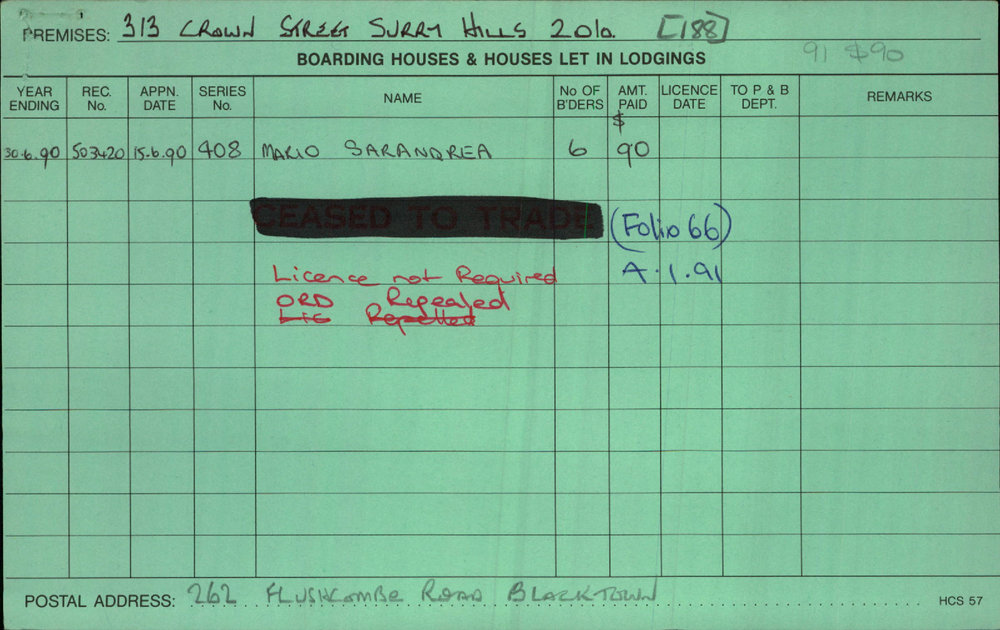 PREMISES: 313 CROWN STREET SURRY HILLS 2010. [188]
91 $90
BOARDING HOUSES & HOUSES LET IN LODGINGS
YEAR ENDING REC. No. APPN. DATE SERIES No. NAME No OF B'DERS AMT. PAID LICENCE DATE TO P & B DEPT. REMARKS
$
30.6.90 503420 15.6.90 408 MARIO SARANDREA 6 90
CEASED TO TRADE (Folio 66)
Licence not Required A.1.91
ORD Repealed
Lic Repelled
POSTAL ADDRESS: 262 FLUSHCOMBE ROAD BLACKTOWN HCS 57